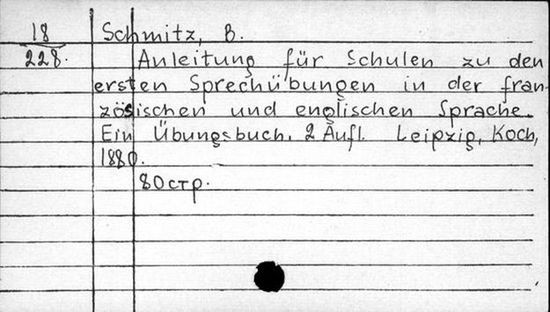 18 Schmitz, B.
228. Anleitung für Schulen zu den
ersten Sprechübungen in der fran-
zösischen und englischen Sprache.
Ein Übungsbuch. 2 Aufl. Leipzig, Koch,
1880.
80 стр.